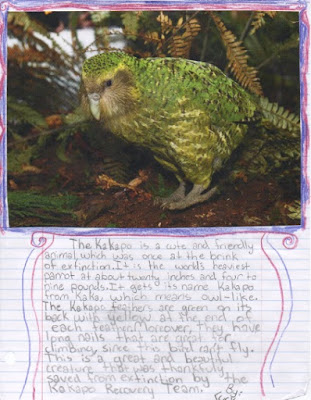 The Kakapo is a cute and friendly
animal, which was once at the brink
of extinction. It is the world's heaviest
parrot at about twenty inches and four to
nine pounds. It gets its name Kakapo
from Kaka, which means owl-like.
The Kakapo feathers are green on its
back with yellow at the end of
each feather. Morcover, they have
long nails that are great for
climbing, since this bird can't fly.
This is a great and beautiful
creature that was thankfully
saved from extinction by "the
Kakapo Recovery Team."